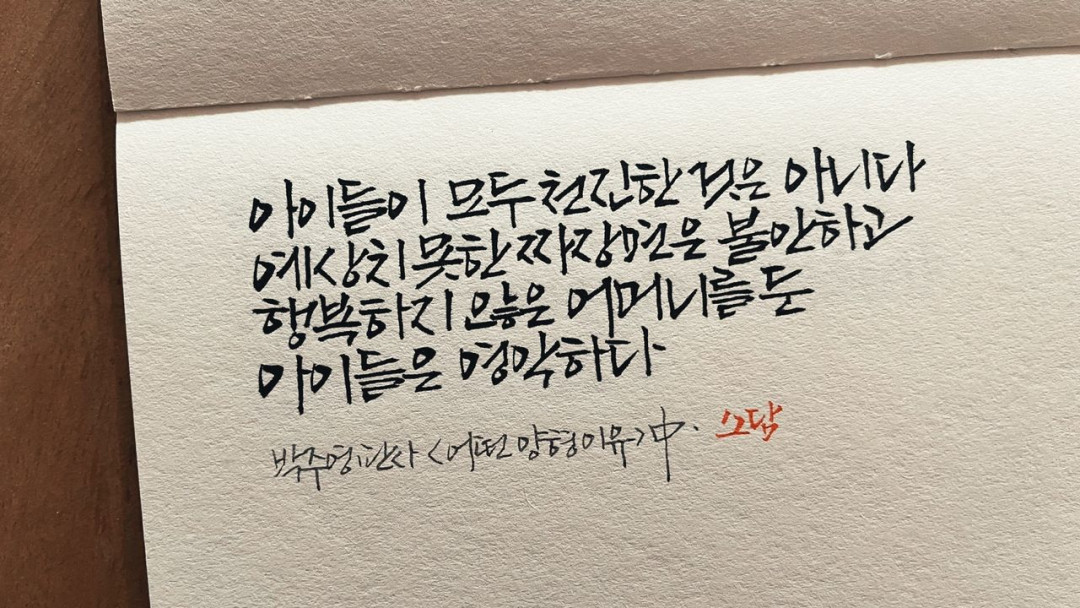 아이들이 모두 천진한 것은 아니다
예상치 못한 짜장면은 불안하고
행복하지 않은 어머니를 둔
아이들은 영악하다
박주영 판사 <어떤 양형 이유> 中. 소담